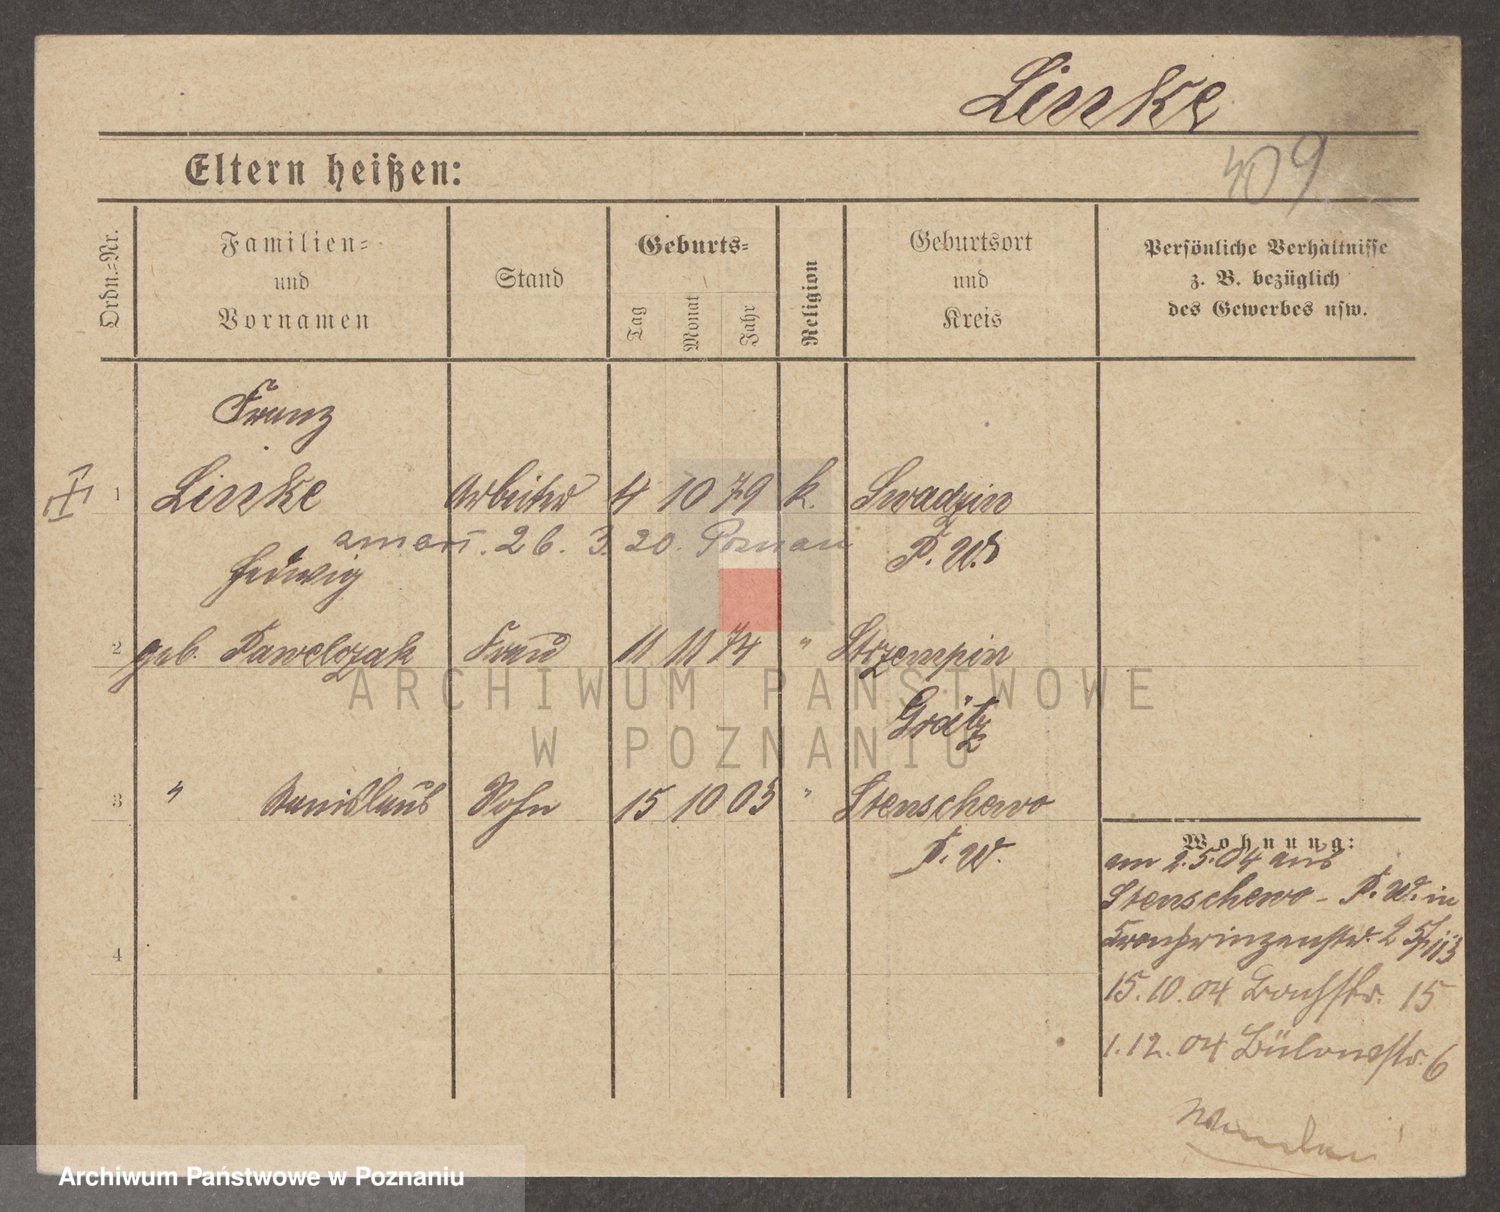 Linke
409
Eltern heißen:
Ordn.=Nr.
Familien=
und
Vornamen
Stand
Geburts=
Tag
Monat
Jahr
Religion
Geburtsort
und
Kreis
Persönliche Verhältnisse
z. B. bezüglich
des Gewerbes usw.
Franz
1 Linke Arbeiter 4 10 79 k. Swadzin
26. 3. 20. Poznan
P. W.
Hedwig
2 geb. Pawelczak Frau 11 11 74 " Strzempin
Grätz
3 " Stanislaus Sohn 15 10 03 " Stenschewo
P. W.
4
Wohnung:
am 2.5.04 aus
Stenschewo - P. W. in
Kronprinzenstr. 2
15. 10. 04 Bachstr. 15
1. 12. 04 Bülowstr. 6
ARCHIWUM PAŃSTWOWE
W POZNANIU
Archiwum Państwowe w Poznaniu